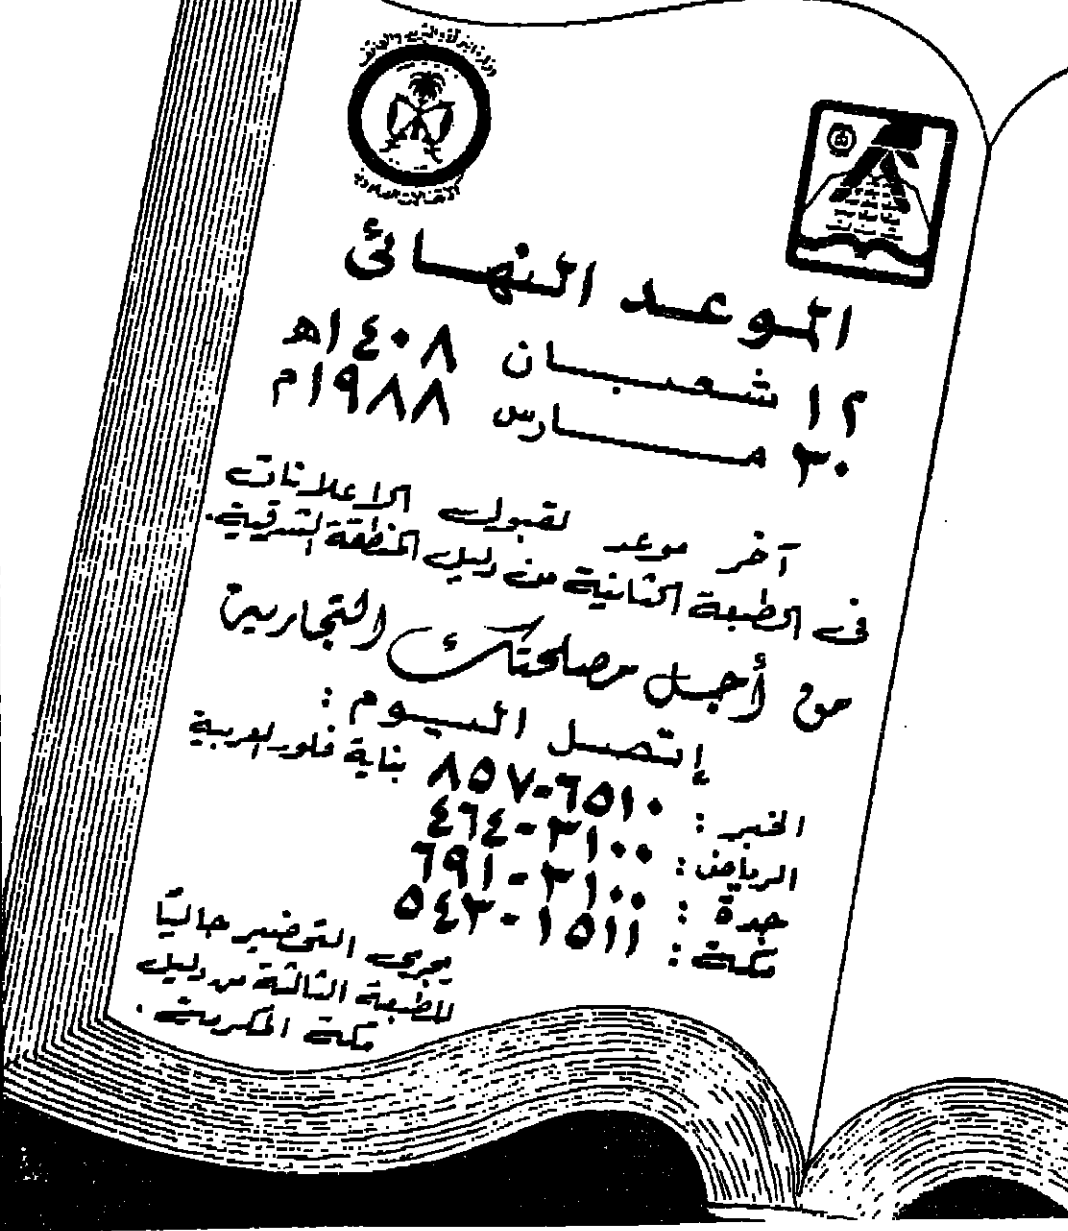 وزارة البرق والبريد والهاتف
الاتصالات السعودية
الموعد النهائى
١٢ شعبان ١٤٠٨هـ
٣٠ مارس ١٩٨٨م
آخر موعد لقبول الاعلانات
فى الطبعة الثانية من دليل المنطقة الشرقية.
من أجل مصلحتك التجارية
إتصل اليوم :
الخبر : ٨٥٧-٦٥١٠ بناية فلور العربية
الرياض : ٤٦٤-٣١٠٠
جدة : ٦٩١-٣١٠٠
مكة : ٥٤٣-١٥١١
يجرى التحضير حاليًا
للطبعة الثالثة من دليل
مكة المكرمة .